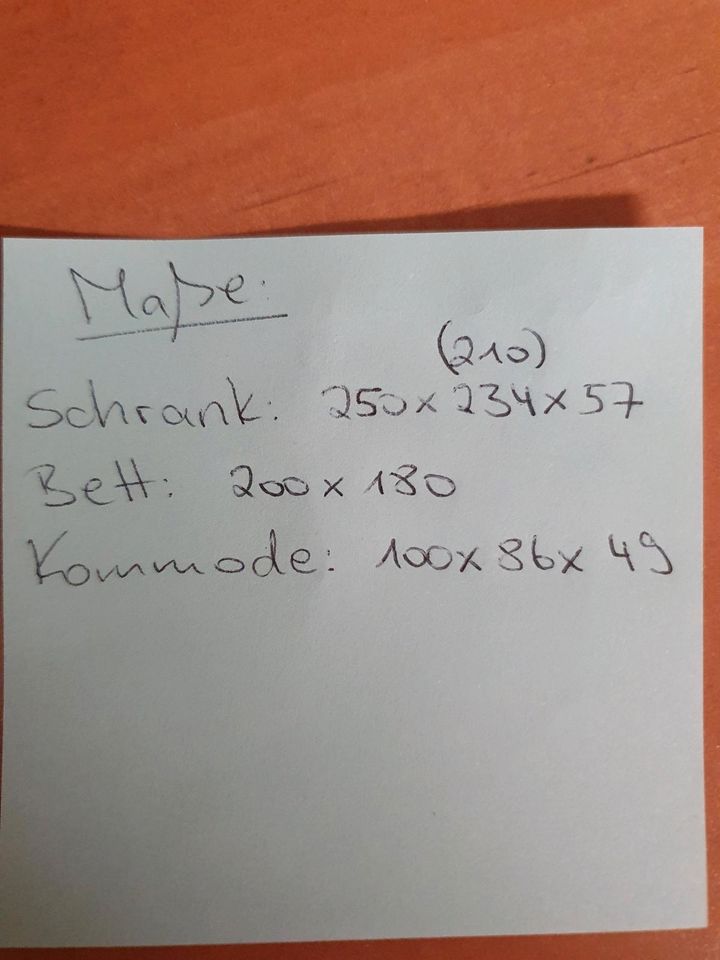 Maße:
(210)
Schrank: 250 x 234 x 57
Bett: 200 x 180
Kommode: 100 x 86 x 49